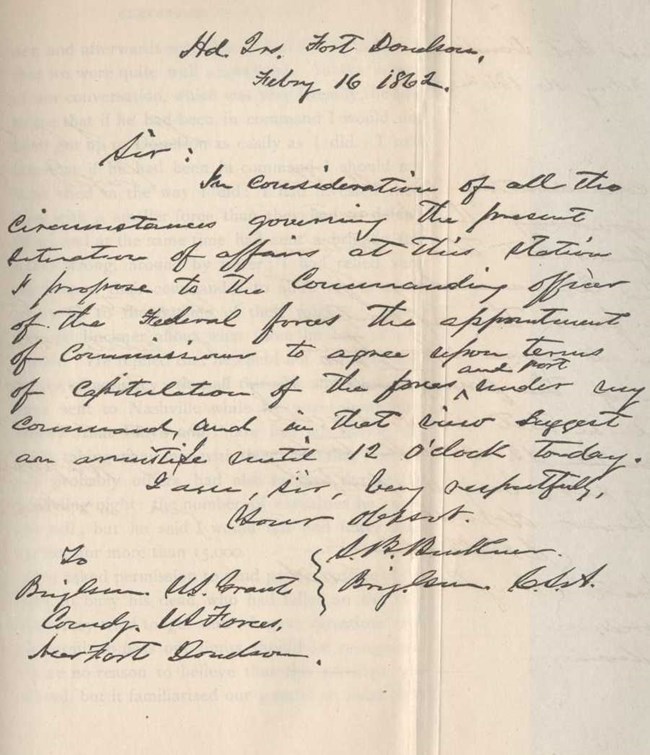 Hd. Qrs. Fort Donelson,
Febry 16 1862.
Sir:
In consideration of all the
circumstances governing the present
situation of affairs at this station
I propose to the Commanding officer
of the Federal forces the appointment
of Commissioners to agree upon terms
of capitulation of the forces and Fort under my
command, and in that view suggest
an armistice until 12 o'clock today.
I am, sir, very respectfully,
Your obt svt.
S. B. Buckner.
Brig. Gen. C.S.A.
To
Brig Gen. U.S. Grant
Comdg. US Forces,
Near Fort Donelson.